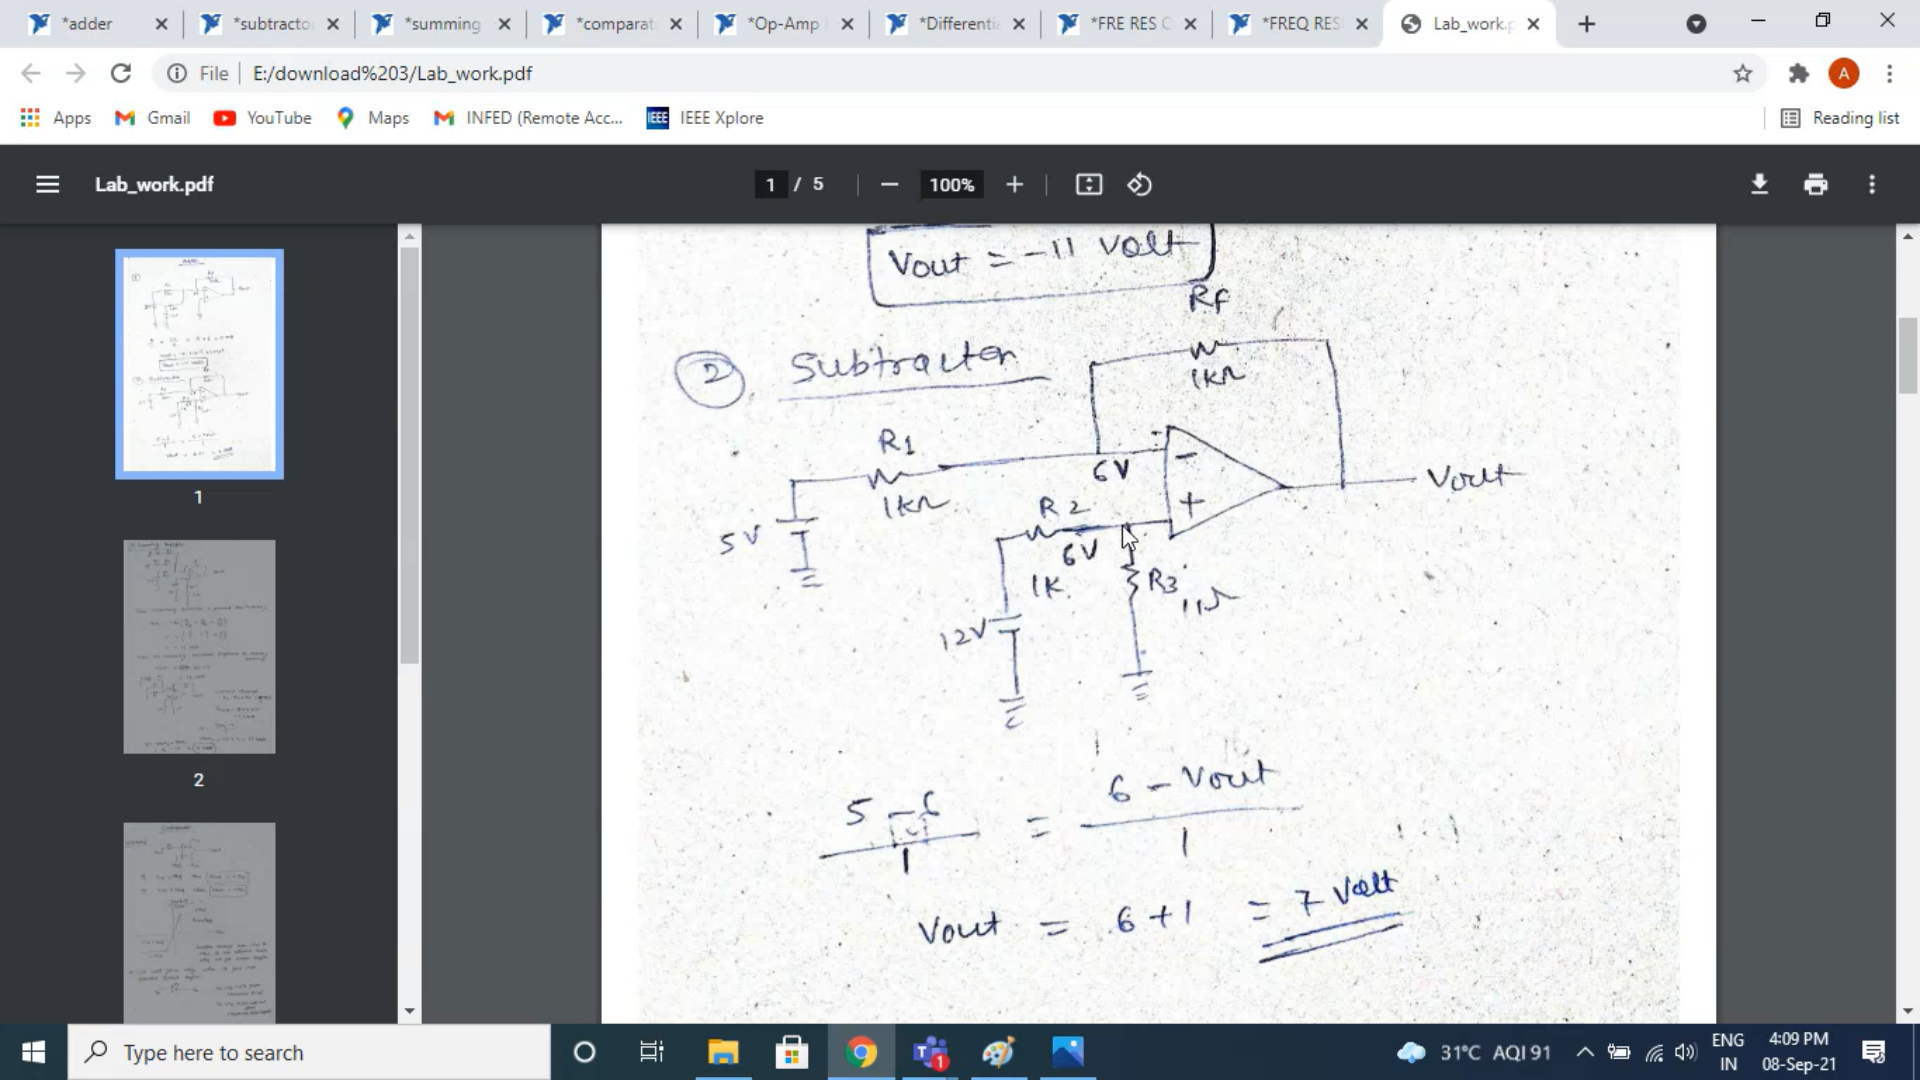 *adder
*subtracto
*summing
*comparat
*Op-Amp
*Differenti
*FRE RES C
*FREQ RES
Lab_work.p
File
E:/download%203/Lab_work.pdf
A
Apps
Gmail
YouTube
Maps
INFED (Remote Acc...
IEEE
IEEE Xplore
Reading list
Lab_work.pdf
1 / 5
100%
Vout = -11 volt
Rf
② Subtractor
1kΩ
R1
6V
-
1kΩ
Vout
+
R2
5V
6V
1K.
R3
12V
5 - 6 / 1 = 6 - Vout / 1
Vout = 6+1 = 7 Volt
1
2
Type here to search
1
31°C AQI 91
ENG
IN
4:09 PM
08-Sep-21